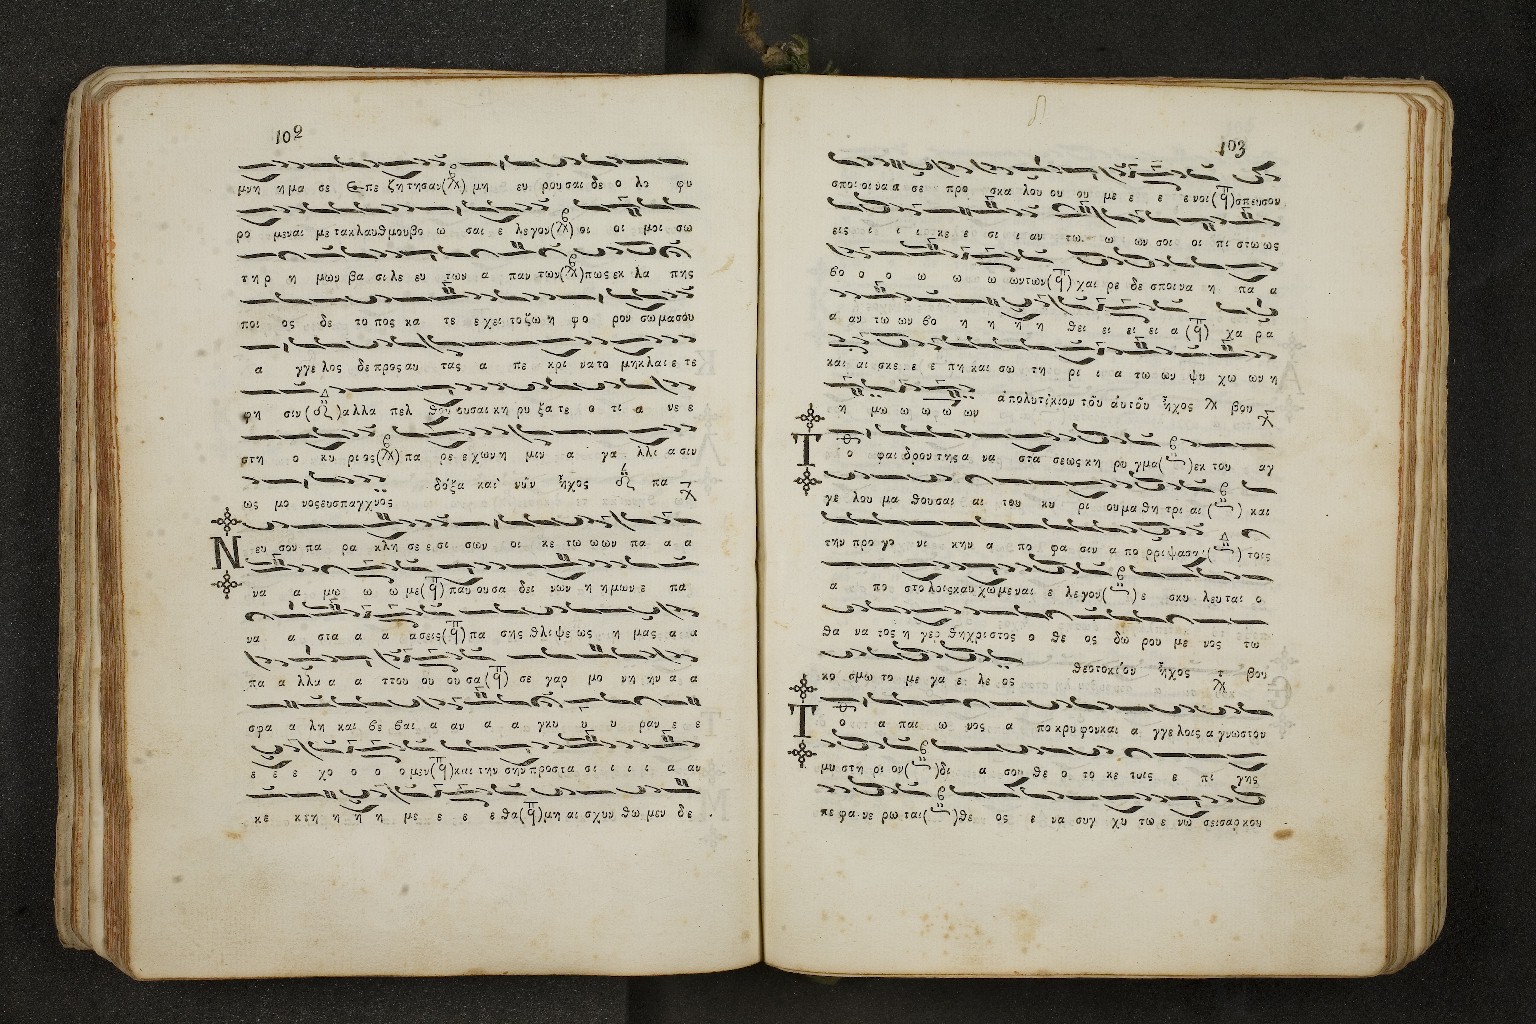 102
μνη η μα σε Є πε ζη τη σαν( ) μη ευ ρου σαι δε ο λο φυ
ρο μεναι με τακλαυθμουβο ω σαι ε λεγον( ) οι οι μοι σω
τηρ η μων βα σι λε ευ των α παντων( )πως εκ λα πης
ποι ος δε το πος κα τε ε χει το ζω η φο ρον σωμασου
α γγε λος δε προς αυ τας α πε κρι νατο μηκλαι ε τε
φη σιν( )αλλα πελ θου ουσαι κη ρυ ξα τε ο τι α νε ε
στη ο κυ ριος( ) πα ρε ε χων η μιν α γα λλι α σιν
ως μο νοςευσπαγχνος δόξα καὶ νῦν ἦχος πα
Ν ευ σου πα ρα κλη σε ε σι σων οι κε τω ων πα α α
να α μω ω ω με(q) παυ ου σα δει νων η η μων ε πα
να α στα α α ασεις(q) πα σης θλι ψε ως η μας α α
πα α λλα α α ττου ου ου σα(q) σε γαρ μο νη ην α α
σφα α λη και βε βαι α αν α α γκυ υ υ ραν ε ε
ε ε ε χο ο ο ομεν(q)και την σην προστα σι ι ι ι α αν
κε κτη η η η με ε ε ε θα(q) μη αι σχυν θω μεν δε
103
σποι οι να α σε προ σκα λου ου ου με ε ε ε νοι(q)σπευσον
εις ι ι ι κε ε σι ι αν τω ω ων σοι οι πι στω ως
βο ο ο ω ω ω ωντων(q) χαι ρε δε σποι να η πα α
α αν τω ων βο η η η η θει ει ει ει α (q) χα ρα
και αι σκε ε ε πη και σω τη ρι ι α τω ων ψυ χω ων η
η μω ω ω ω ων ἀπολυτίκιον τοῦ αὐτοῦ ἦχος βου
Τ ο φαι δρον της α να στα σεως κη ρυ γμα( )εκ του αγ
γε λου μα θουσαι αι του κυ ρι ου μα θη τρι αι ( ) και
την προ γο νι κην α πο φα σιν α πο ρριψασαι( ) τοις
α πο στολοιςκαυχωμεναι ε λεγον( ) ε σκυ λευται ο
θα να τος η γερ θηχριστος ο θε ος δω ρου με νος τω
κο σμω το με γα ε λε ος θεοτοκίον ἦχος βου
Τ ο α παι ω νος α πο κρυ φονκαι α γγε λοις α γνωστον
μυ στη ρι ον( )δι α σου θε ο το κε τοις ε πι γης
πε φα νε ρω ται( )θε ος ε να συγ χυ τω ε νω σεισαρκου